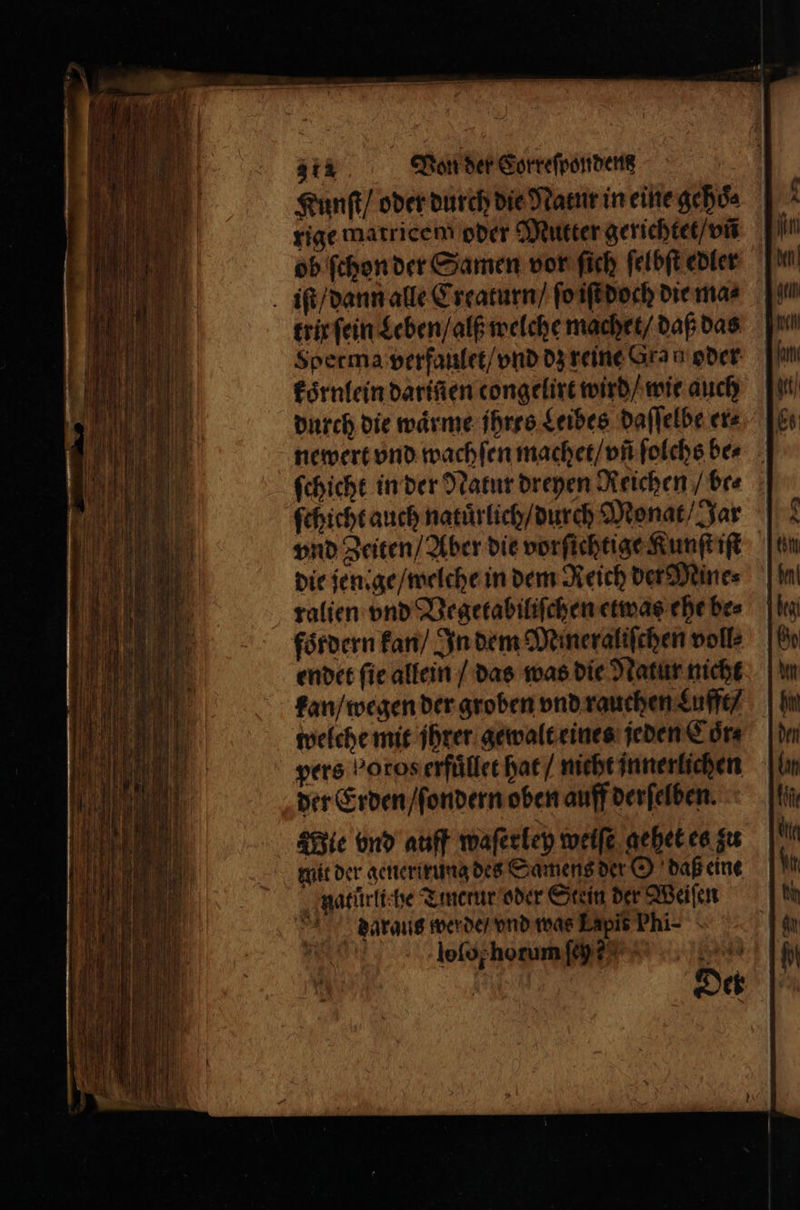 312 Von der Correſpondentz
Kunſt/ oder durch die Natur in eine gehoͤ⸗
rige matricem oder Mutter gerichtet/ vñ
ob ſchon der Samen vor ſich ſelbſt edler
iſt/ dann alle Creaturn/ ſo iſt doch die ma⸗
trix ſein Leben/ alß welche machet/ daß das
Sperma verfaulet/ vnd dz reine Gran oder
koͤrnlein dariñen congelirt wird/ wie auch
durch die waͤrme jhres Leibes daſſelbe er⸗
newert vnd wachſen machet/ vñ ſolchs be⸗
ſchicht in der Natur dreyen Reichen / be⸗
ſchicht auch natuͤrlich/ durch Monat/ Jar
vnd Zeiten/ Aber die vorſichtige Kunſt iſt
die jenige/ welche in dem Reich der Mine⸗
ralien vnd Vegetabiliſchen etwas ehe be⸗
foͤrdern kan/ In dem Mineraliſchen voll⸗
endet ſie allein / das was die Natur nicht
kan/ wegen der groben vnd rauchen Lufft/
welche mit jhrer gewalt eines jeden Coͤr⸗
pers Poros erfuͤllet hat / nicht jnnerlichen
der Erden/ ſondern oben auff derſelben.
Wie vnd auff waſerley weiſe gehet es zu
mit der generirung des Samens der ☉ daß eine
natuͤrliche Tinctur oder Stein der Weiſen
daraus werde/ vnd was Lapis Phi-
loſophorum ſey?
Der